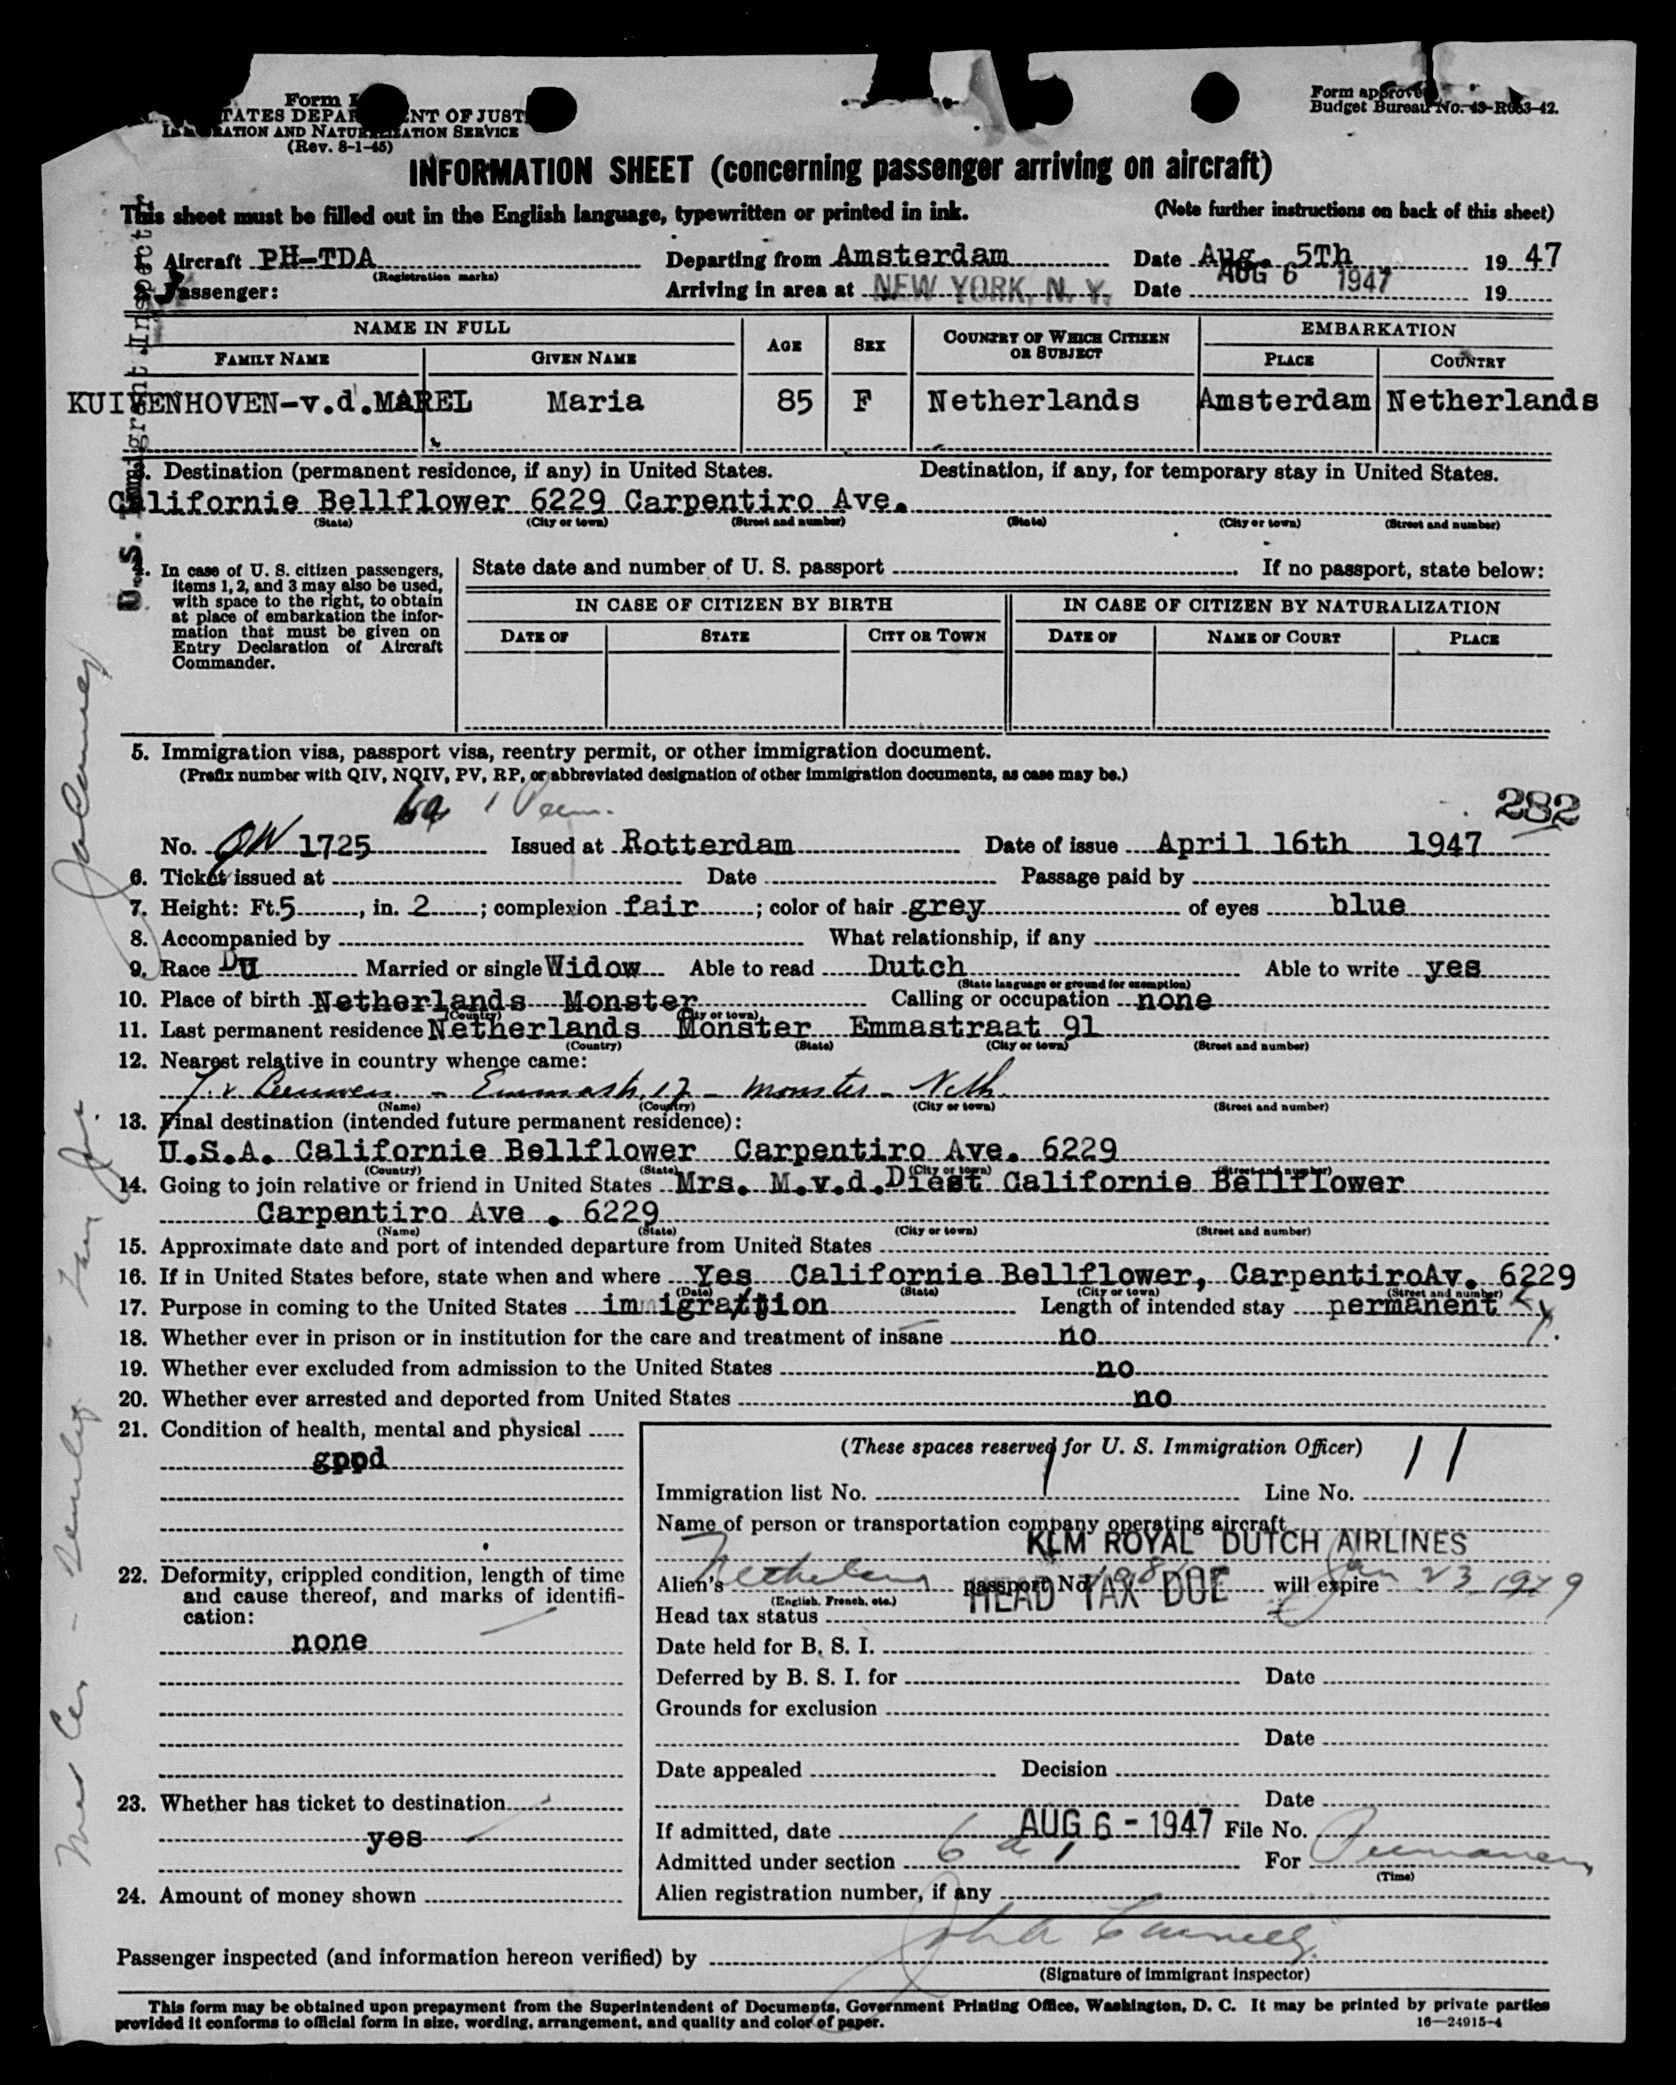 Form I
STATES DEPARTMENT OF JUSTI
IMMIGRATION AND NATURALIZATION SERVICE
(Rev. 8-1-45)
Form approved
Budget Bureau No. 43-R063-42.
INFORMATION SHEET (concerning passenger arriving on aircraft)
This sheet must be filled out in the English language, typewritten or printed in ink. (Note further instructions on back of this sheet)
Aircraft PH-TDA Departing from Amsterdam Date Aug. 5Th 19 47
(Registration marks)
Passenger: Arriving in area at NEW YORK, N. Y. Date AUG 6 1947 19
NAME IN FULL AGE SEX COUNTRY OF WHICH CITIZEN OR SUBJECT EMBARKATION
FAMILY NAME GIVEN NAME PLACE COUNTRY
KUIVENHOVEN-v.d.MAREL Maria 85 F Netherlands Amsterdam Netherlands
3. Destination (permanent residence, if any) in United States. Destination, if any, for temporary stay in United States.
Californie Bellflower 6229 Carpentiro Ave.
(State) (City or town) (Street and number) (State) (City or town) (Street and number)
4. In case of U. S. citizen passengers,
items 1, 2, and 3 may also be used,
with space to the right, to obtain
at place of embarkation the infor-
mation that must be given on
Entry Declaration of Aircraft
Commander.
State date and number of U. S. passport If no passport, state below:
IN CASE OF CITIZEN BY BIRTH IN CASE OF CITIZEN BY NATURALIZATION
DATE OF STATE CITY OR TOWN DATE OF NAME OF COURT PLACE
5. Immigration visa, passport visa, reentry permit, or other immigration document.
(Prefix number with QIV, NQIV, PV, RP, or abbreviated designation of other immigration documents, as case may be.)
282
No. 1725 Issued at Rotterdam Date of issue April 16th 1947
6. Ticket issued at Date Passage paid by
7. Height: Ft.5, in. 2; complexion fair; color of hair grey of eyes blue
8. Accompanied by What relationship, if any
9. Race DU Married or single Widow Able to read Dutch Able to write yes
(State language or ground for exemption)
10. Place of birth Netherlands Monster Calling or occupation none
(Country) (City or town)
11. Last permanent residence Netherlands Monster Emmastraat 91
(Country) (State) (City or town) (Street and number)
12. Nearest relative in country whence came:
Emmastr. 12 - Monster - Neth.
(Name) (Country) (City or town) (Street and number)
13. Final destination (intended future permanent residence):
U.S.A. Californie Bellflower Carpentiro Ave. 6229
(Country) (State) (City or town) (Street and number)
14. Going to join relative or friend in United States Mrs. M.v.d.Diest Californie Bellflower
Carpentiro Ave . 6229
(Name) (State) (City or town) (Street and number)
15. Approximate date and port of intended departure from United States
16. If in United States before, state when and where Yes Californie Bellflower, CarpentiroAv. 6229
(Date) (State) (City or town) (Street and number)
17. Purpose in coming to the United States immigration Length of intended stay permanent
18. Whether ever in prison or in institution for the care and treatment of insane no
19. Whether ever excluded from admission to the United States no
20. Whether ever arrested and deported from United States no
21. Condition of health, mental and physical
gppd
22. Deformity, crippled condition, length of time
and cause thereof, and marks of identifi-
cation:
none
23. Whether has ticket to destination
yes
24. Amount of money shown
(These spaces reserved for U. S. Immigration Officer)
Immigration list No. 1 Line No. 11
Name of person or transportation company operating aircraft
KLM ROYAL DUTCH AIRLINES
Alien's passport No. will expire Jan 23 1949
(English, French, etc.)
HEAD TAX DUE
Head tax status
Date held for B. S. I.
Deferred by B. S. I. for Date
Grounds for exclusion
Date
Date appealed Decision
Date
If admitted, date AUG 6 - 1947 File No.
Admitted under section 6 a 1 For Permanent
(Time)
Alien registration number, if any
Passenger inspected (and information hereon verified) by
(Signature of Immigrant Inspector)
This form may be obtained upon prepayment from the Superintendent of Documents, Government Printing Office, Washington, D. C. It may be printed by private parties
provided it conforms to official form in size, wording, arrangement, and quality and color of paper. 16—24915-4
U.S. Immigrant Inspector